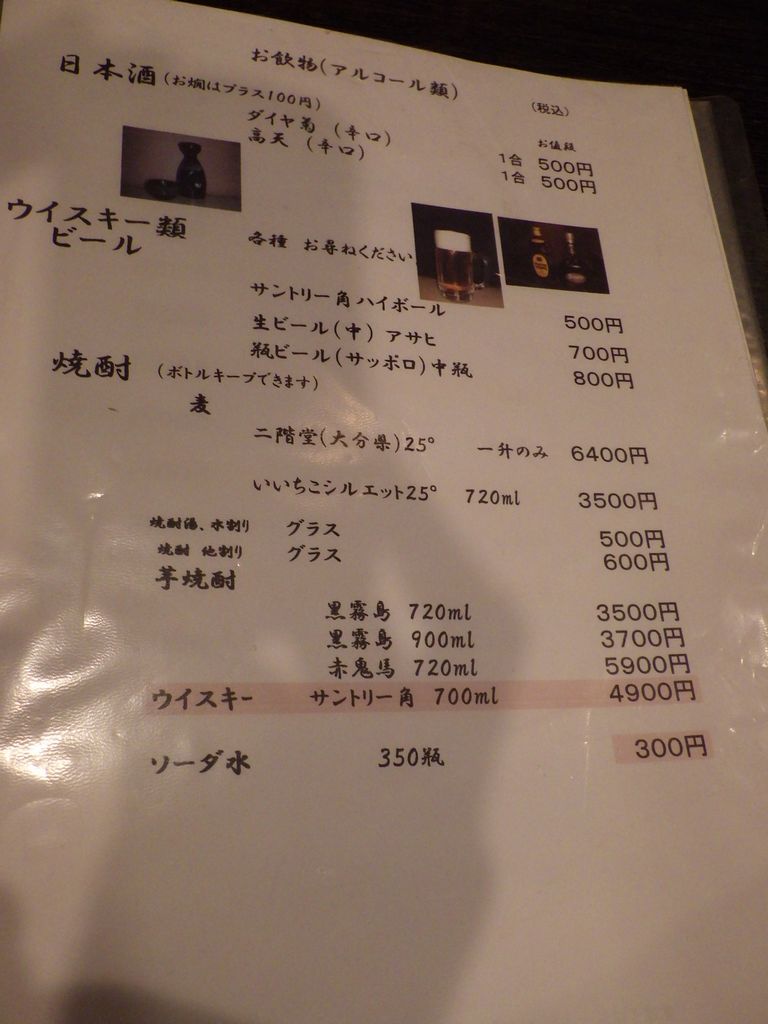 お飲物(アルコール類)
日本酒(お燗はプラス100円) (税込)
お値段
ダイヤ菊 (辛口) 1合 500円
高天 (辛口) 1合 500円
ウイスキー類
ビール
各種 お尋ねください
サントリー角ハイボール 500円
生ビール(中) アサヒ 700円
瓶ビール(サッポロ)中瓶 800円
焼酎 (ボトルキープできます)
麦
二階堂(大分県)25° 一升のみ 6400円
いいちこシルエット25° 720ml 3500円
焼酎湯、水割り グラス 500円
焼酎 他割り グラス 600円
芋焼酎
黒霧島 720ml 3500円
黒霧島 900ml 3700円
赤鬼馬 720ml 5900円
ウイスキー サントリー角 700ml 4900円
ソーダ水 350瓶 300円